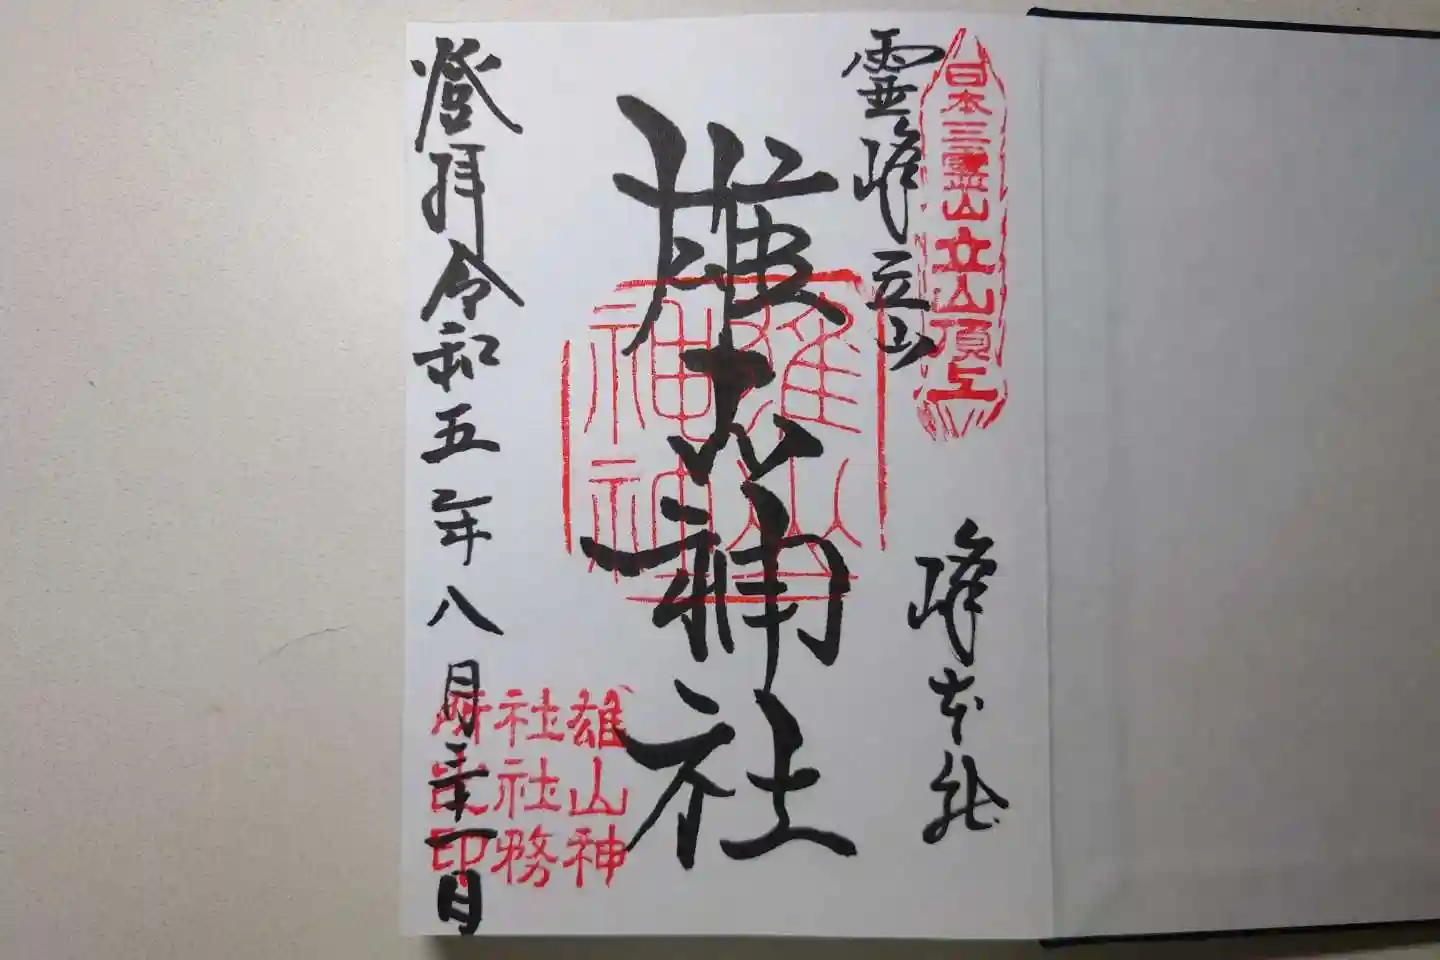 日本三霊山立山頂上
霊峰立山
峰本社
雄山神社
雄山神神
登拝令和五年八月三十一日
雄山神
社社務
所之印